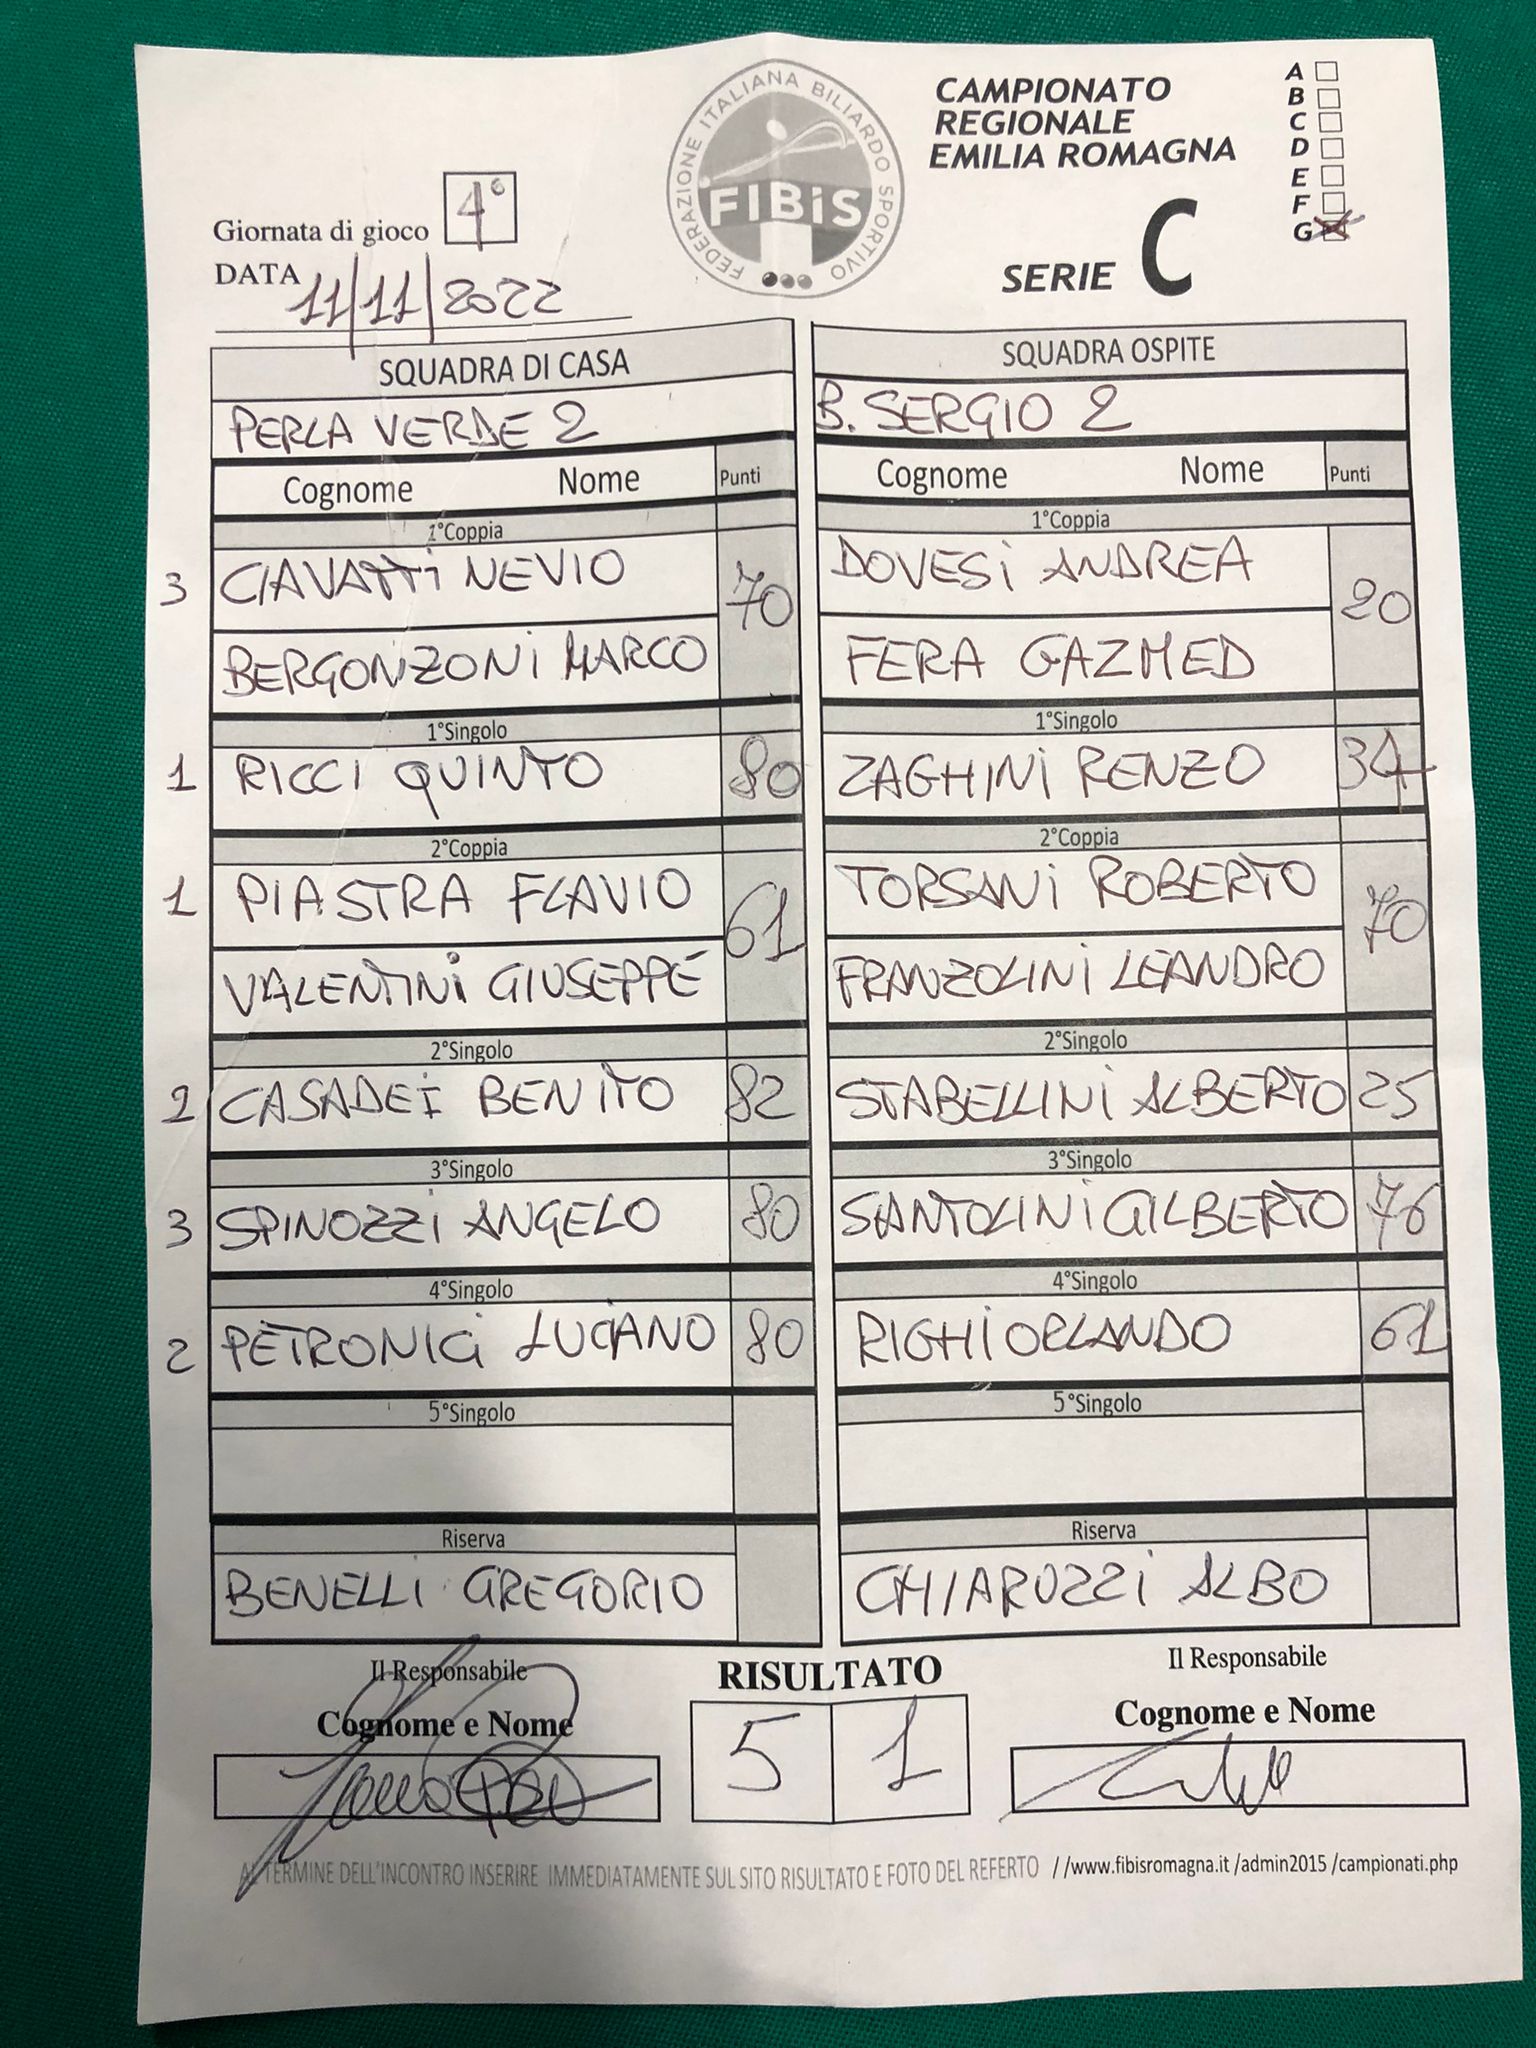 FEDERAZIONE ITALIANA BILIARDO SPORTIVO
FIBiS
CAMPIONATO
REGIONALE
EMILIA ROMAGNA
SERIE C
A
B
C
D
E
F
G
Giornata di gioco 4°
DATA 11/11/2022
SQUADRA DI CASA
PERLA VERDE 2
Cognome Nome Punti
1°Coppia
3 CIAVATTI NEVIO 70
BERGONZONI MARCO
1°Singolo
1 RICCI QUINTO 80
2°Coppia
1 PIASTRA FLAVIO 61
VALENTINI GIUSEPPE
2°Singolo
2 CASADEI BENITO 82
3°Singolo
3 SPINOZZI ANGELO 80
4°Singolo
2 PETRONICI LUCIANO 80
5°Singolo
Riserva
BENELLI GREGORIO
SQUADRA OSPITE
B. SERGIO 2
Cognome Nome Punti
1°Coppia
DOVESI ANDREA 20
FERA GAZMED
1°Singolo
ZAGHINI RENZO 34
2°Coppia
TORSANI ROBERTO 70
FRANZOLINI LEANDRO
2°Singolo
STABELLINI ALBERTO 25
3°Singolo
SANTOLINI GILBERTO 76
4°Singolo
RIGHI ORLANDO 61
5°Singolo
Riserva
CHIARUZZI ALBO
Il Responsabile
Cognome e Nome
RISULTATO
5 1
Il Responsabile
Cognome e Nome
AL TERMINE DELL'INCONTRO INSERIRE IMMEDIATAMENTE SUL SITO RISULTATO E FOTO DEL REFERTO //www.fibisromagna.it /admin2015 /campionati.php